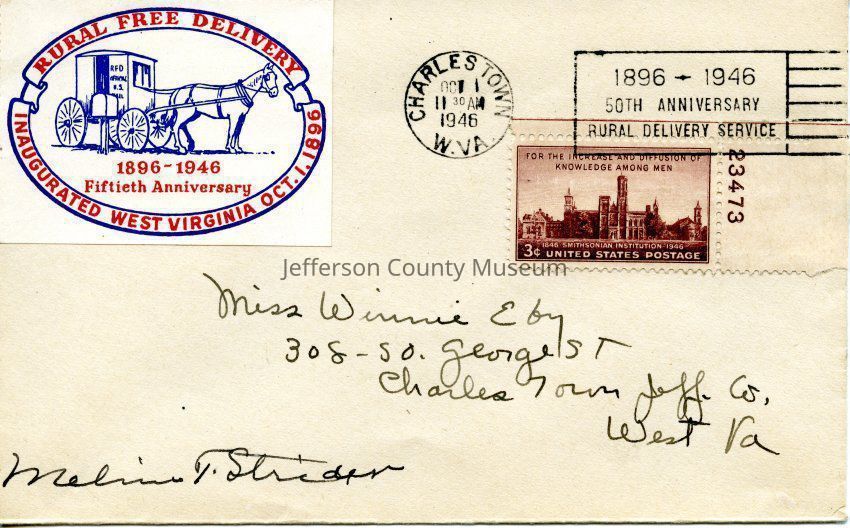 RURAL FREE DELIVERY
RFD
U.S.
MAIL
1896-1946
Fiftieth Anniversary
INAUGURATED WEST VIRGINIA OCT. 1, 1896
CHARLES TOWN
OCT 1
11 30 AM
1946
W. VA.
1896 - 1946
50TH ANNIVERSARY
RURAL DELIVERY SERVICE
FOR THE INCREASE AND DIFFUSION OF
KNOWLEDGE AMONG MEN
1846 SMITHSONIAN INSTITUTION 1946
3¢ UNITED STATES POSTAGE
23473
Jefferson County Museum
Miss Winnie Eby
308-So. George ST
Charles Town Jeff. Co,
West Va
T. Strider